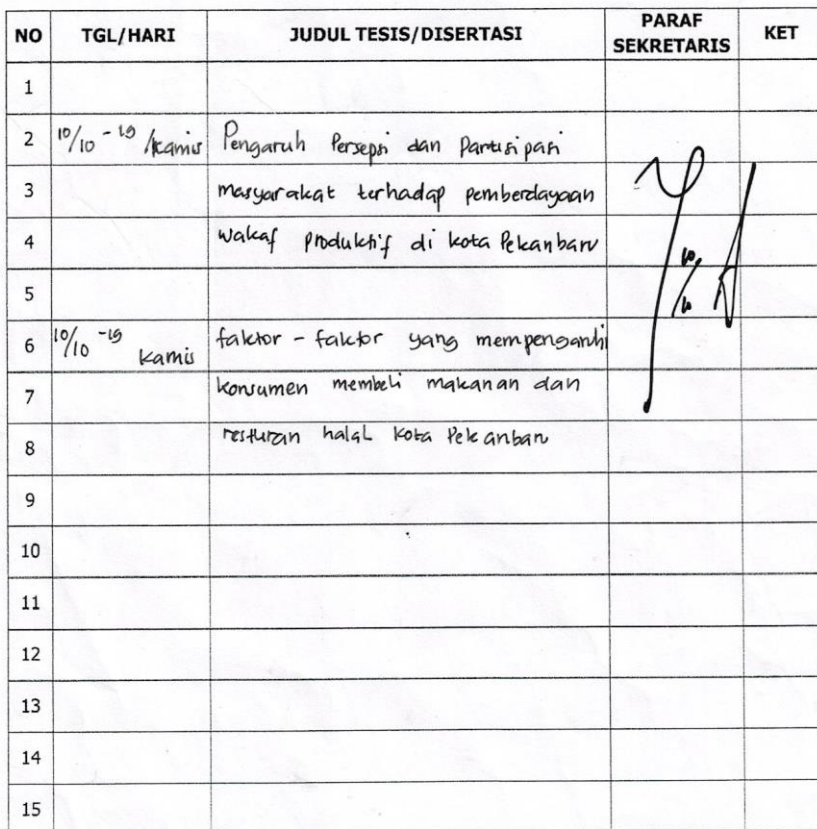 NO TGL/HARI JUDUL TESIS/DISERTASI PARAF SEKRETARIS KET
1
2 10/10 -19 /kamis Pengaruh Persepsi dan Partisipasi
3 masyarakat terhadap pemberdayaan
4 wakaf produktif di kota Pekanbaru
5 10/10
6 10/10 -19 kamis faktor - faktor yang mempengaruhi
7 konsumen membeli makanan dan
8 resturan halal kota Pekanbaru
9
10
11
12
13
14
15